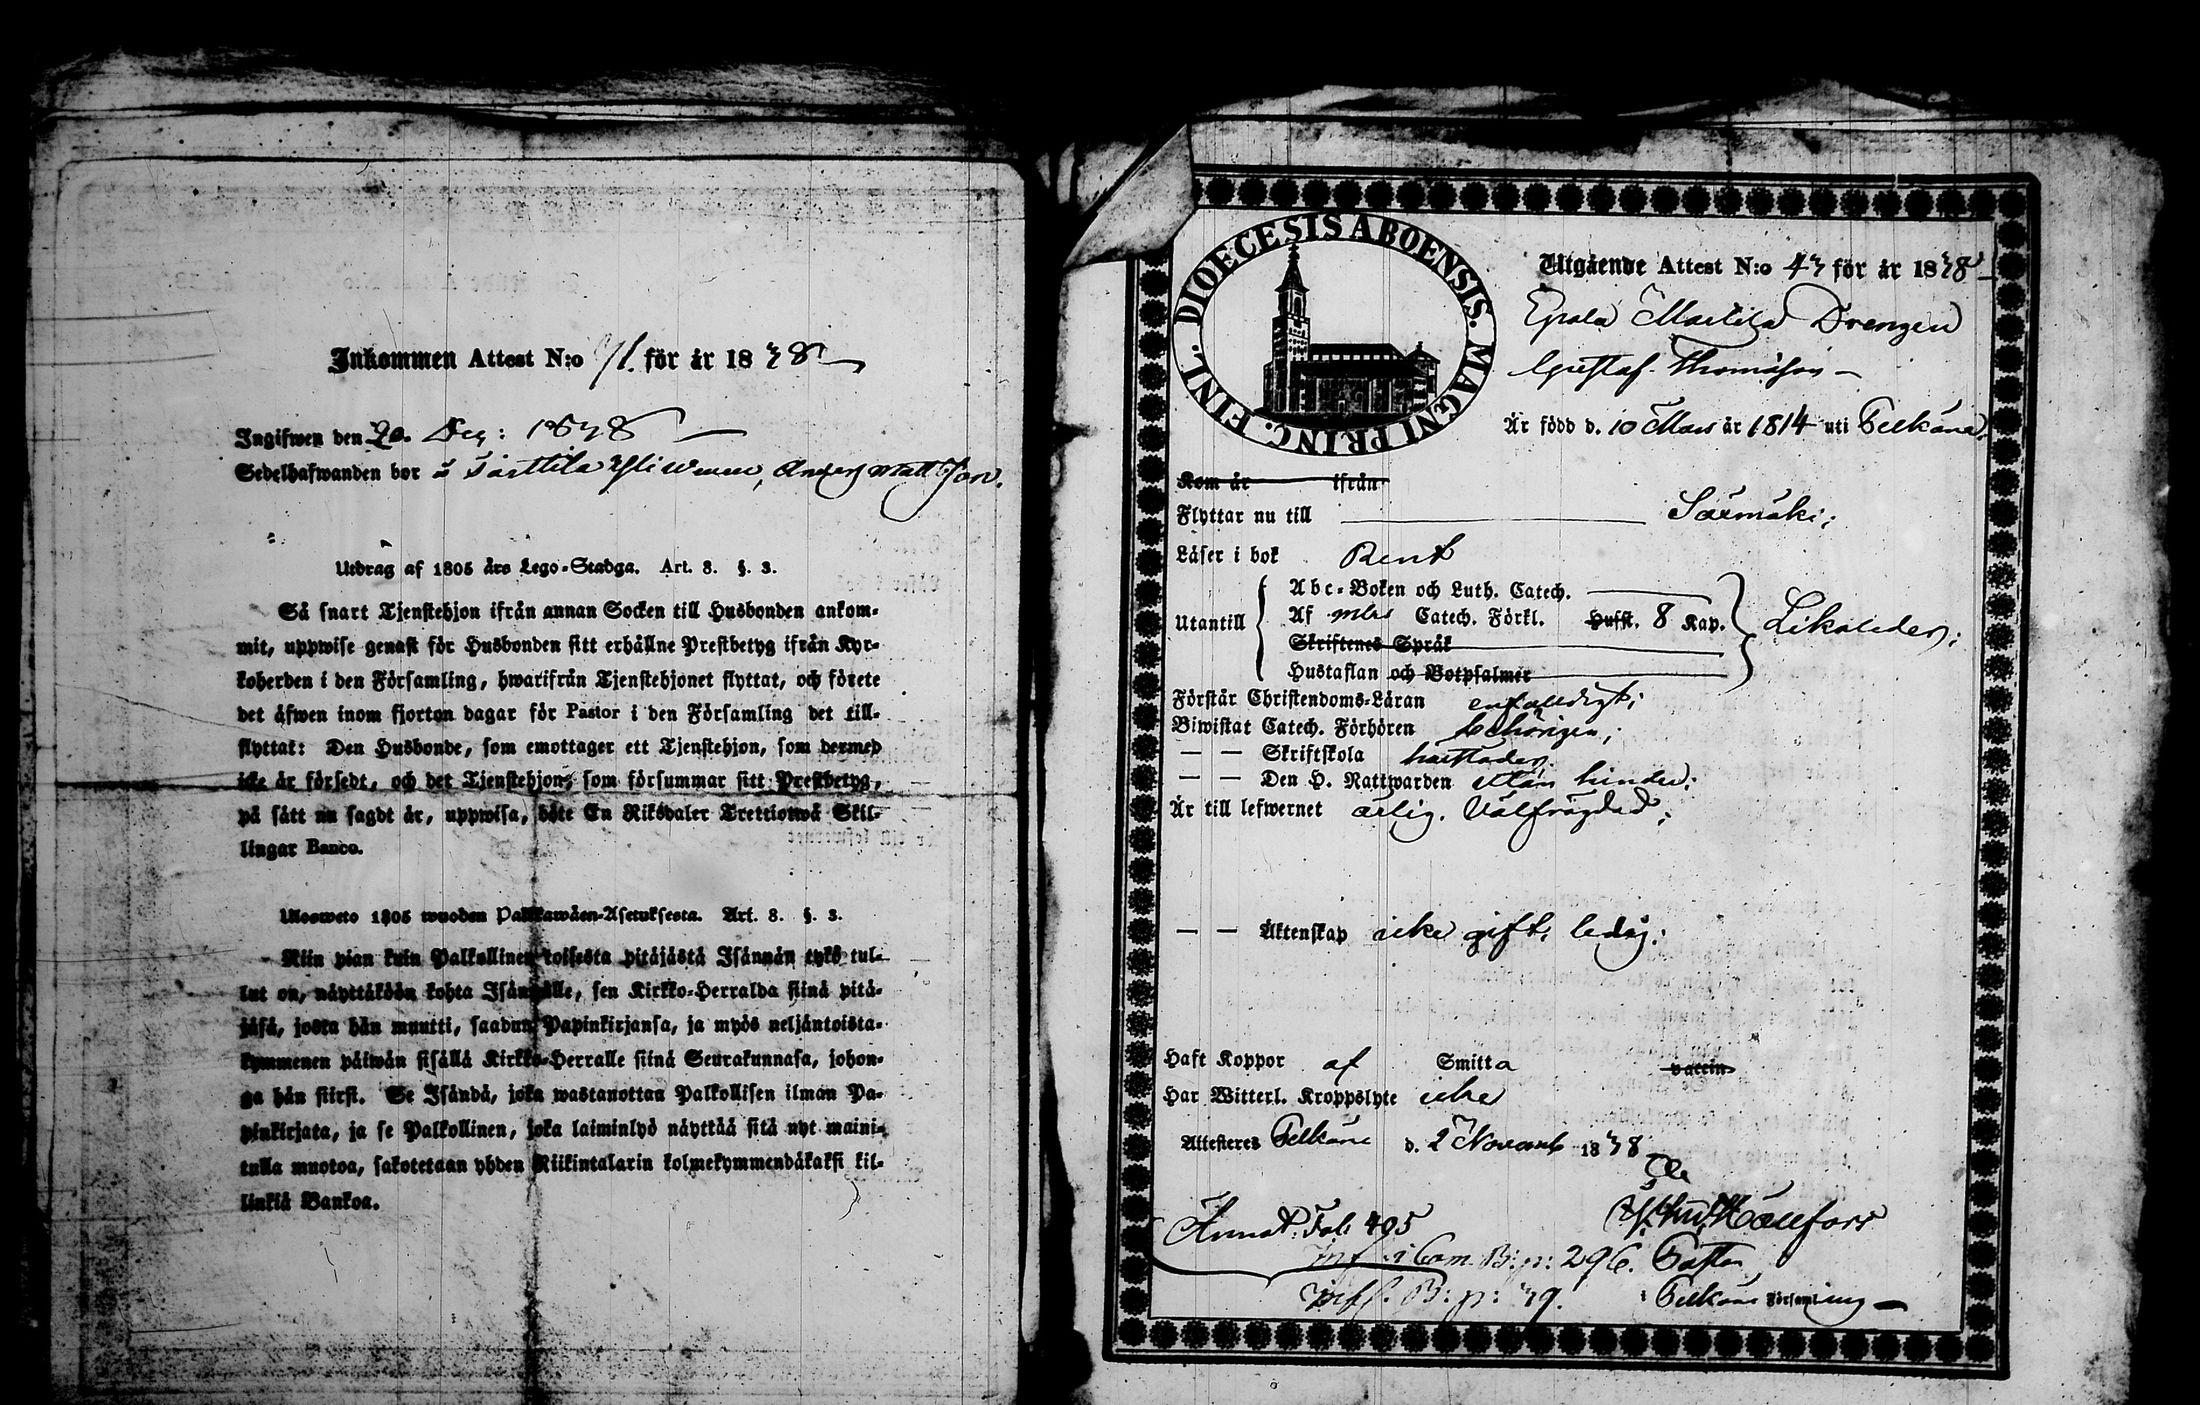 Inkommen Attest N:o 71. för år 1838
Ingifwen den 20. Dec: 1838
Sedelhafwanden bor å Anders Mattsson.
Utdrag af 1805 års Lego-Stadga. Art. 8. §. 3.
Så snart Tjenstehjon ifrån annan Socken till Husbonden ankom-
mit, uppwise genast för Husbonden sitt erhållne Prestbetyg ifrån Kyr-
koherden i den Församling, hwarifrån Tjenstehjonet flyttat, och förete
det äfwen inom fjorton dagar för Pastor i den Församling det till-
flyttat: Den Husbonde, som emottager ett Tjenstehjon, som dermed
icke är försedt, och det Tjenstehjon, som försummar sitt Prestbetyg,
på sätt nu sagdt är, uppwisa, böte En Riksdaler Trettiotwå Skil-
lingar Banco.
Ulosweto 1805 wuoden Palkkawäen-Asetuksesta. Art. 8. §. 3.
Niin pian kuin Palkollinen toisesta pitäjästä Isännän tykö tul-
lut on, näyttäköön kohta Isännälle, sen Kirkko-Herralda siinä pitä-
jäsä, josta hän muutti, saadun Papinkirjansa, ja myös neljäntoista-
kymmenen päiwän sisällä Kirkko-Herralle siinä Seurakunnasa, johon-
ga hän siirsi. Se Isändä, joka wastanottaa Palkollisen ilman Pa-
pinkirjata, ja se Palkollinen, joka laiminlyö näyttää sitä nyt maini-
tulla muotoa, sakotetaan yhden Riikintalarin kolmekymmendäkaksi kil-
linkiä Bankoa.
DIOECESIS ABOENSIS. MAGNI PRINC. FINL.
Utgående Attest N:o 43 för år 1838
Epala Martila Drengen
Gustaf Thomasson
Är född d. 10 Mars år 1814 uti Pelkäne.
Kom år ifrån
Flyttar nu till Säxmäki;
Läser i bok Rent
Abc-Boken och Luth. Catech.
Utantill Af Catech. Förkl. Hufst. 8 Kap. Likaledes;
Skriftenes Språk
Hustaflan och Botpsalmer
Förstår Christendoms-Läran enfaldigt;
Biwistat Catech. Förhören behörigen;
— — Skriftskola
— — Den H. Nattwarden utan hinder;
Är till lefwernet ärlig. Välfrägdad;
— — Äktenskap icke gift, ledig;
Haft Koppor af Smitta vaccin
Har Witterl. Kroppslyte icke
Attesteres Pelkäne d. 2 Novemb 1838
Annot. Fol. 495
Inf. i Com. B: p: 296. Pastor
Inf. B: p: 39. i Pelkäne Församling